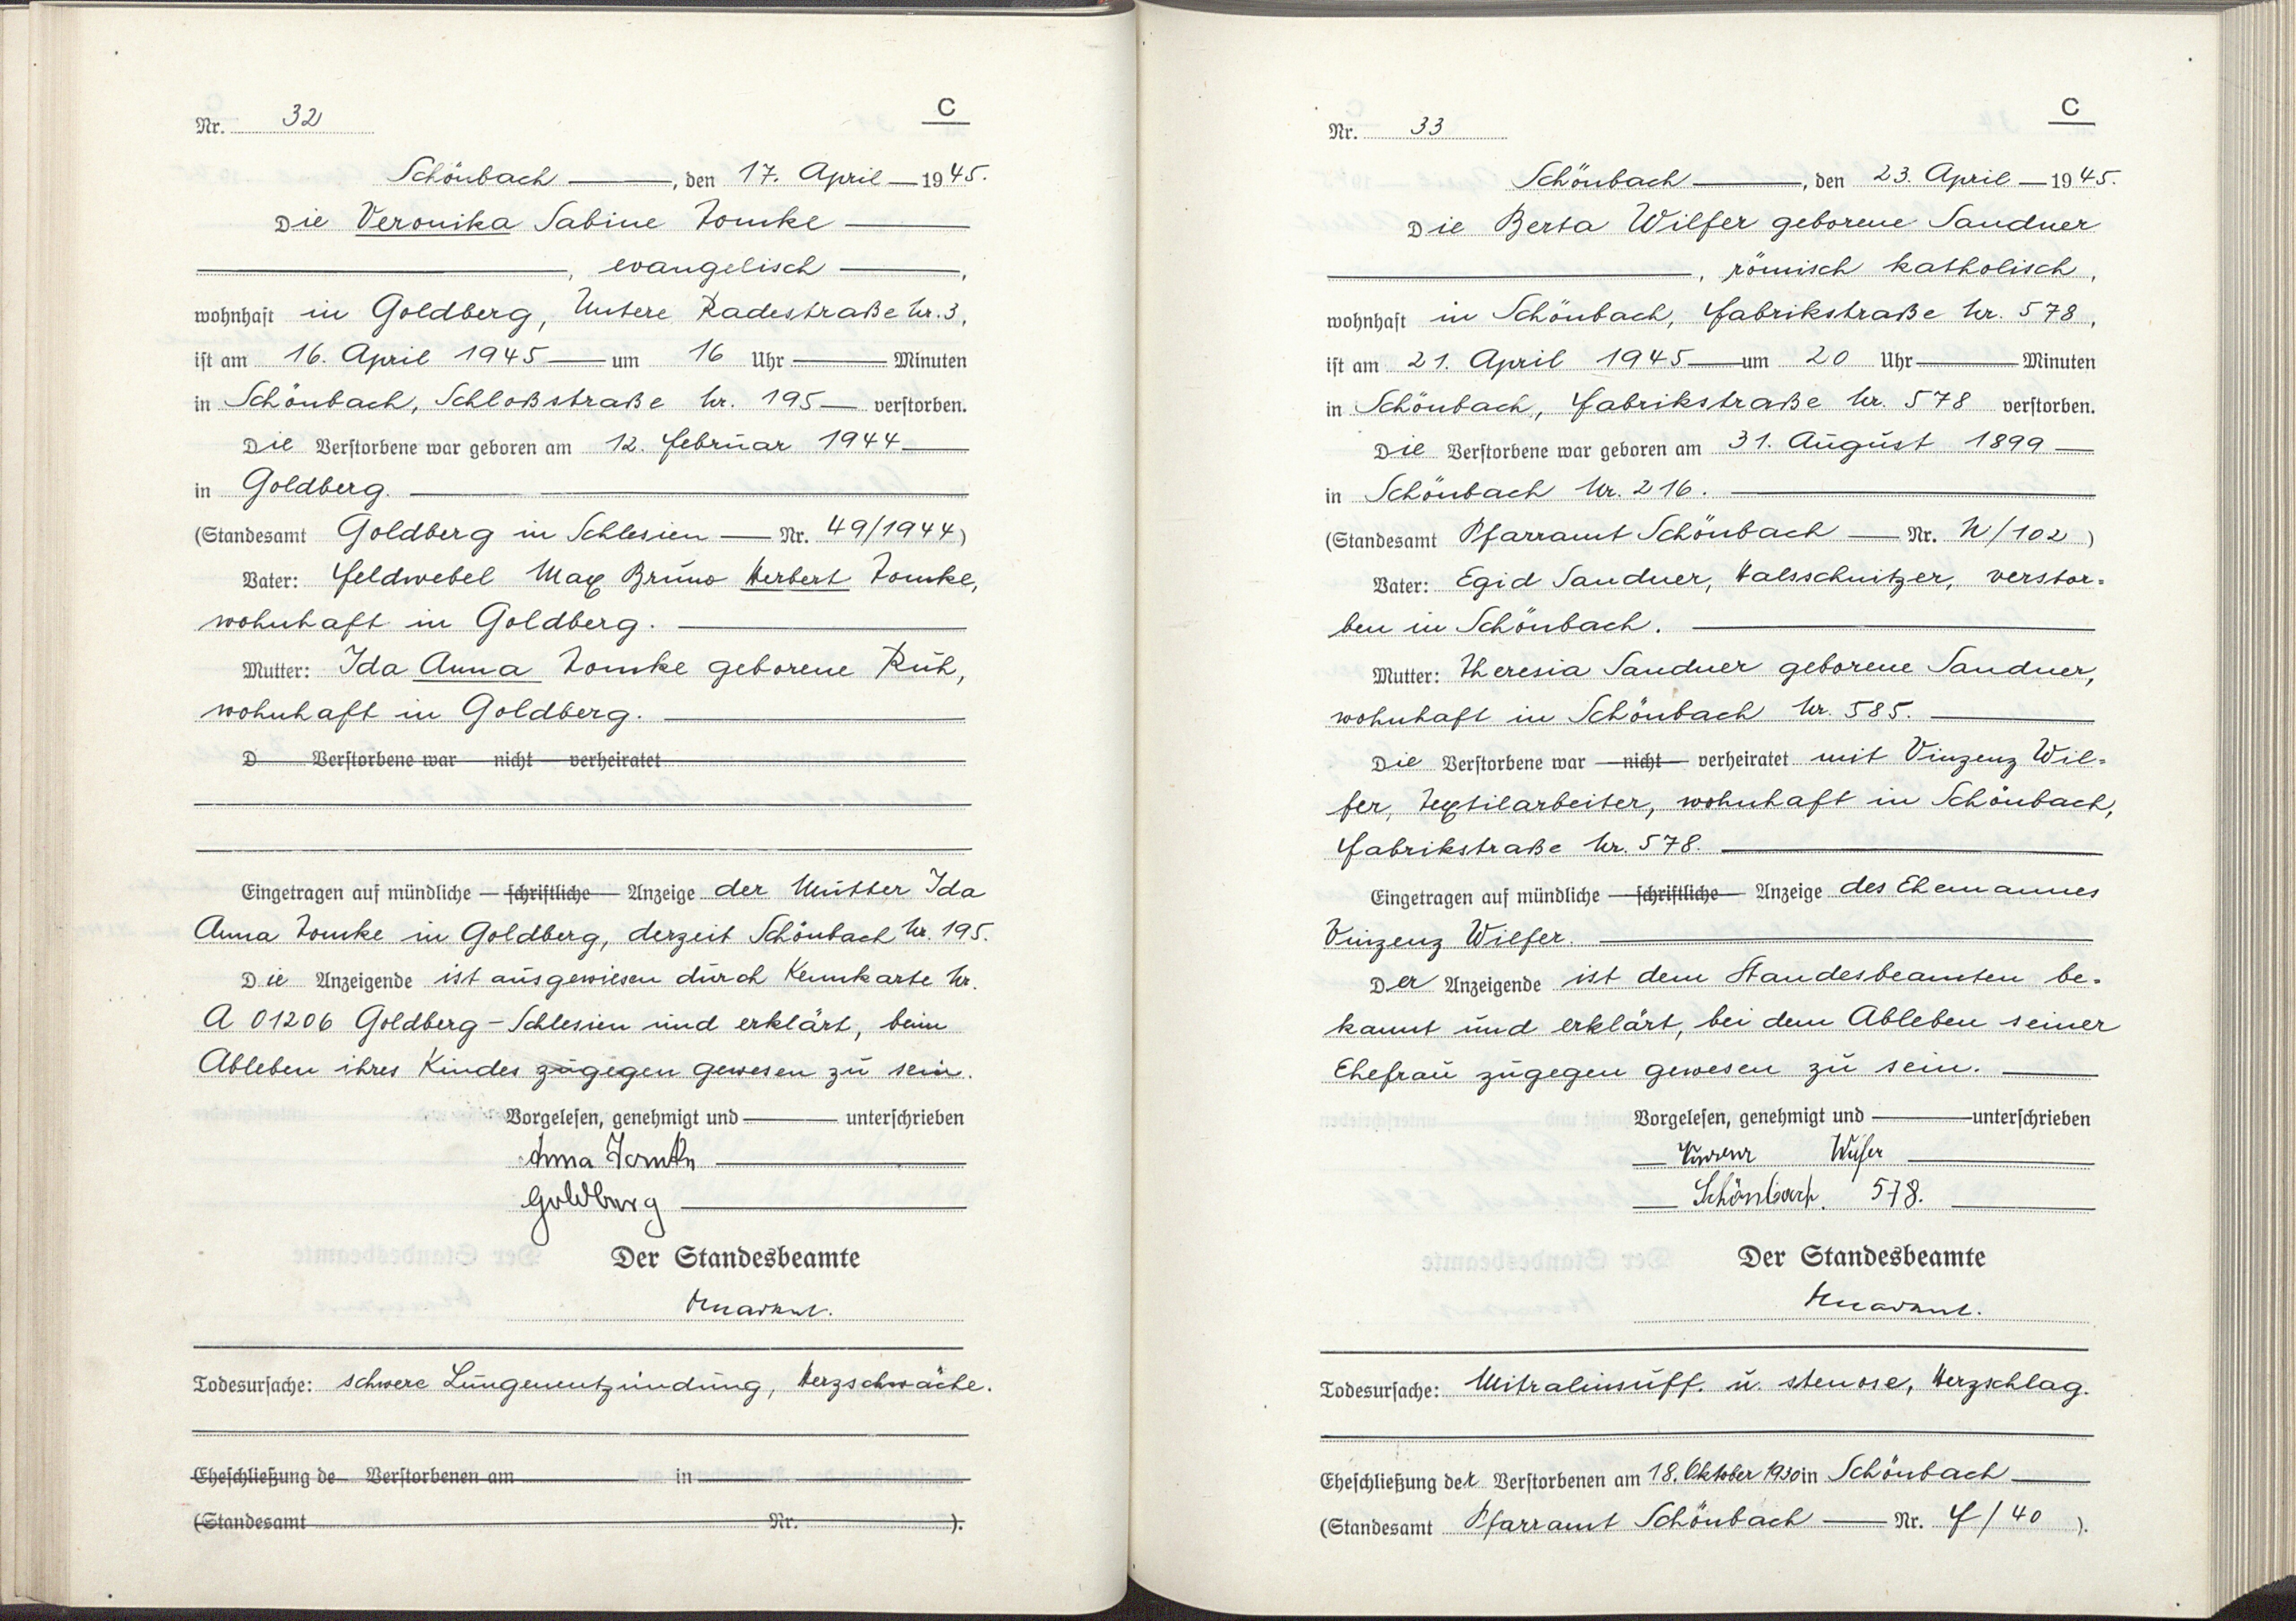 C
Nr. 32
Schönbach, den 17. April 1945.
Die Veronika Sabine Tomke
, evangelisch,
wohnhaft in Goldberg, Untere Radestraße Nr. 3,
ist am 16. April 1945 um 16 Uhr Minuten
in Schönbach, Schloßstraße Nr. 195 verstorben.
Die Verstorbene war geboren am 12. Februar 1944
in Goldberg.
(Standesamt Goldberg in Schlesien Nr. 49/1944)
Vater: Feldwebel Max Bruno Herbert Tomke,
wohnhaft in Goldberg.
Mutter: Ida Anna Tomke geborene Rüh,
wohnhaft in Goldberg.
D Verstorbene war nicht verheiratet
Eingetragen auf mündliche – schriftliche – Anzeige der Mutter Ida
Anna Tomke in Goldberg, derzeit Schönbach Nr. 195.
Die Anzeigende ist ausgewiesen durch Kennkarte Nr.
A 01206 Goldberg-Schlesien und erklärt, beim
Ableben ihres Kindes zugegen gewesen zu sein.
Vorgelesen, genehmigt und unterschrieben
Anna Tomke
Goldberg
Der Standesbeamte
Todesursache: schwere Lungenentzündung, Herzschwäche.
Eheschließung de Verstorbenen am in
(Standesamt Nr. ).
C
Nr. 33
Schönbach, den 23. April 1945.
Die Berta Wilfer geborene Sandner
, römisch katholisch,
wohnhaft in Schönbach, Fabrikstraße Nr. 578,
ist am 21. April 1945 um 20 Uhr Minuten
in Schönbach, Fabrikstraße Nr. 578 verstorben.
Die Verstorbene war geboren am 31. August 1899
in Schönbach Nr. 216.
(Standesamt Pfarramt Schönbach Nr. N/102)
Vater: Egid Sandner, Halsschnitzer, verstor=
ben in Schönbach.
Mutter: Theresia Sandner geborene Sandner,
wohnhaft in Schönbach Nr. 585.
Die Verstorbene war – nicht – verheiratet mit Vinzenz Wil=
fer, Textilarbeiter, wohnhaft in Schönbach,
Fabrikstraße Nr. 578.
Eingetragen auf mündliche – schriftliche – Anzeige des Ehemannes
Vinzenz Wilfer.
Der Anzeigende ist dem Standesbeamten be=
kannt und erklärt, bei dem Ableben seiner
Ehefrau zugegen gewesen zu sein.
Vorgelesen, genehmigt und unterschrieben
Vinzenz Wilfer
Schönbach. 578.
Der Standesbeamte
Todesursache: Mitralinsuff. u. stenose, Herzschlag.
Eheschließung der Verstorbenen am 18. Oktober 1930 in Schönbach
(Standesamt Pfarramt Schönbach Nr. F/40 ).